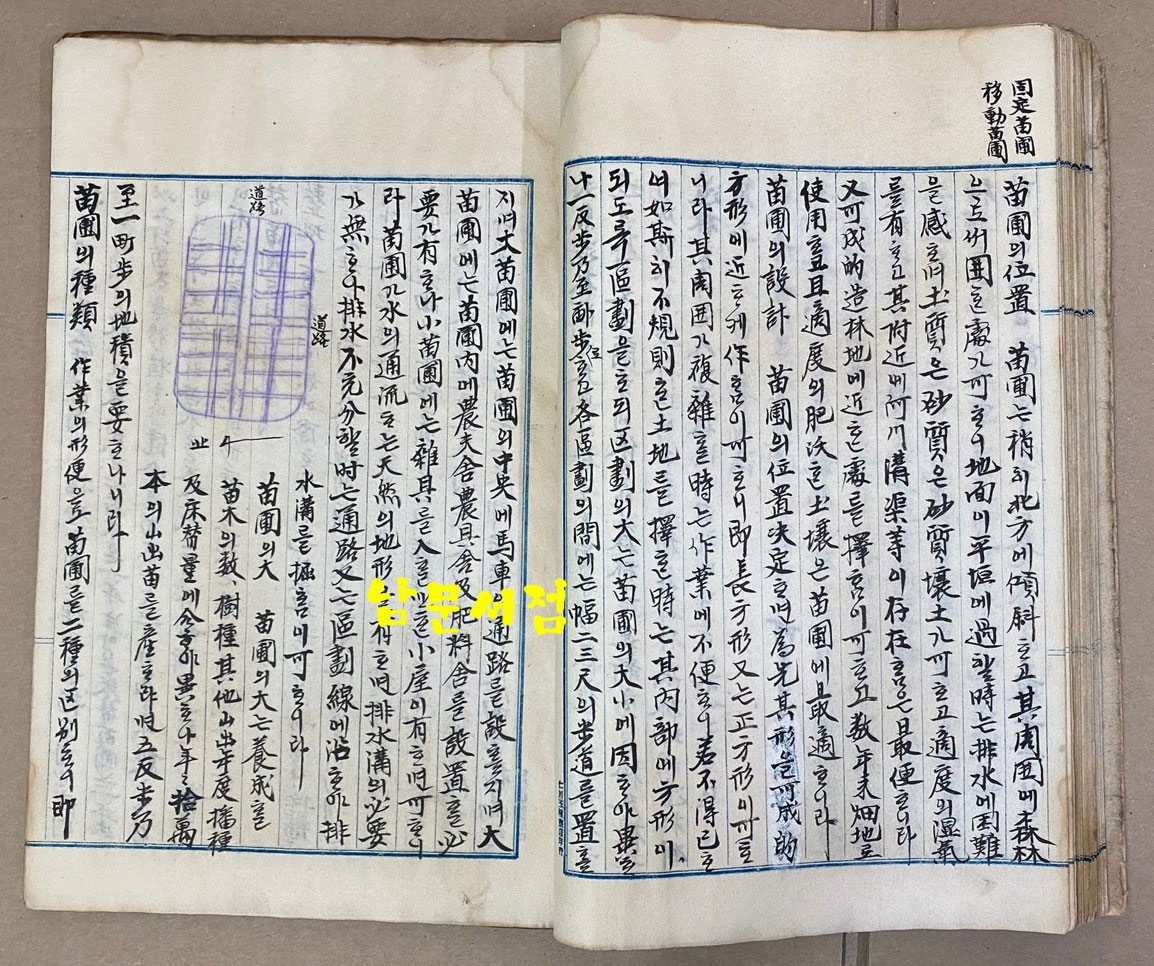 固定苗圃
移動苗圃
苗圃의位置 苗圃는稍히北方에傾斜ᄒᆞ고其周囲에森林
으로써囲ᄒᆞᆫ處가可ᄒᆞ니地面이平垣에過ᄒᆞᆯ時는排水에困難
을感ᄒᆞ며土質은砂質은砂質壤土가可ᄒᆞ고適度의湿氣
를有ᄒᆞ고其附近에河川溝渠等이存在ᄒᆞᆷ은最便ᄒᆞ니라
又可成的造林地에近ᄒᆞᆫ處를擇ᄒᆞᆷ이可ᄒᆞ고数年来畑地로
使用ᄒᆞ고且適度의肥沃ᄒᆞᆫ土壤은苗圃에最適ᄒᆞ니라
苗圃의設計 苗圃의位置決定ᄒᆞ면爲先其形은可成的
方形에近ᄒᆞ게作ᄒᆞᆷ이可ᄒᆞ니即長方形又는正方形이可ᄒᆞ
니라其周囲가複雜ᄒᆞᆯ時는作業에不便ᄒᆞ니若不得已ᄒᆞ
여如斯히不規則ᄒᆞᆫ土地를擇ᄒᆞᆯ時는其内部에方形이
되도록區劃을ᄒᆞ되区劃의大는苗圃의大小에因ᄒᆞ야異ᄒᆞ
나一反步乃至 步位ᄒᆞ고各區劃의間에는幅二三尺의步道를置ᄒᆞ
지며大苗圃에는苗圃의中央에馬車의通路를設ᄒᆞᆯ지며大
苗圃에는苗圃内에農夫舍農具舍及肥料舍를設置ᄒᆞᆯ必
要가有ᄒᆞ나小苗圃에는雜具를入ᄒᆞᆯ 小屋이有ᄒᆞ면可ᄒᆞ니
라苗圃가水의通流ᄒᆞ는天然의地形을有ᄒᆞ면排水溝의必要
가無ᄒᆞ나排水不充分ᄒᆞᆯ時는通路又는區劃線에沿ᄒᆞ야排
水溝를掘ᄒᆞᆷ이可ᄒᆞ니라
道路
道路
北
苗圃의大 苗圃의大는養成ᄒᆞᆯ
苗木의数、樹種其他山出年度播種
及床替量에 ᄒᆞ야異ᄒᆞ나年々拾萬
本의山出苗를産ᄒᆞ랴면五反步乃
至一町步의地積을要ᄒᆞ나니라
苗圃의種類 作業의形便으로苗圃를二種의区別ᄒᆞ니即
남문서점